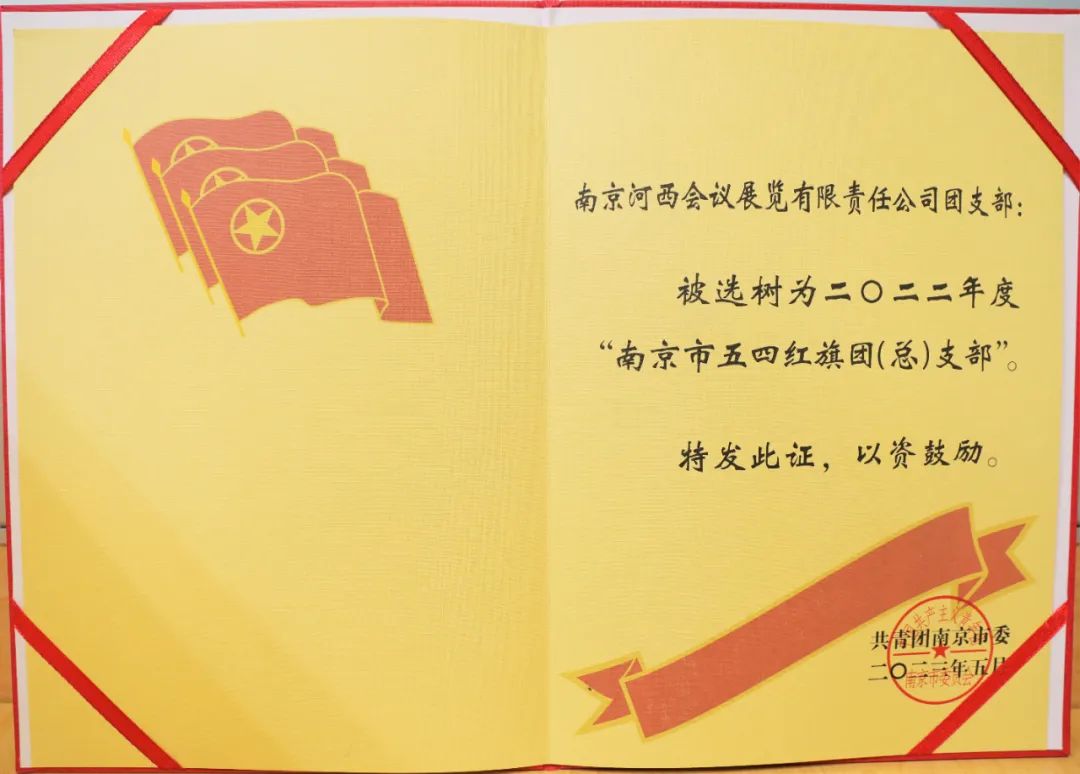 南京河西会议展览有限责任公司团支部：
被选树为二〇二二年度
“南京市五四红旗团(总)支部”。
特发此证，以资鼓励。
共青团南京市委
二〇二三年五月
南京市委员会